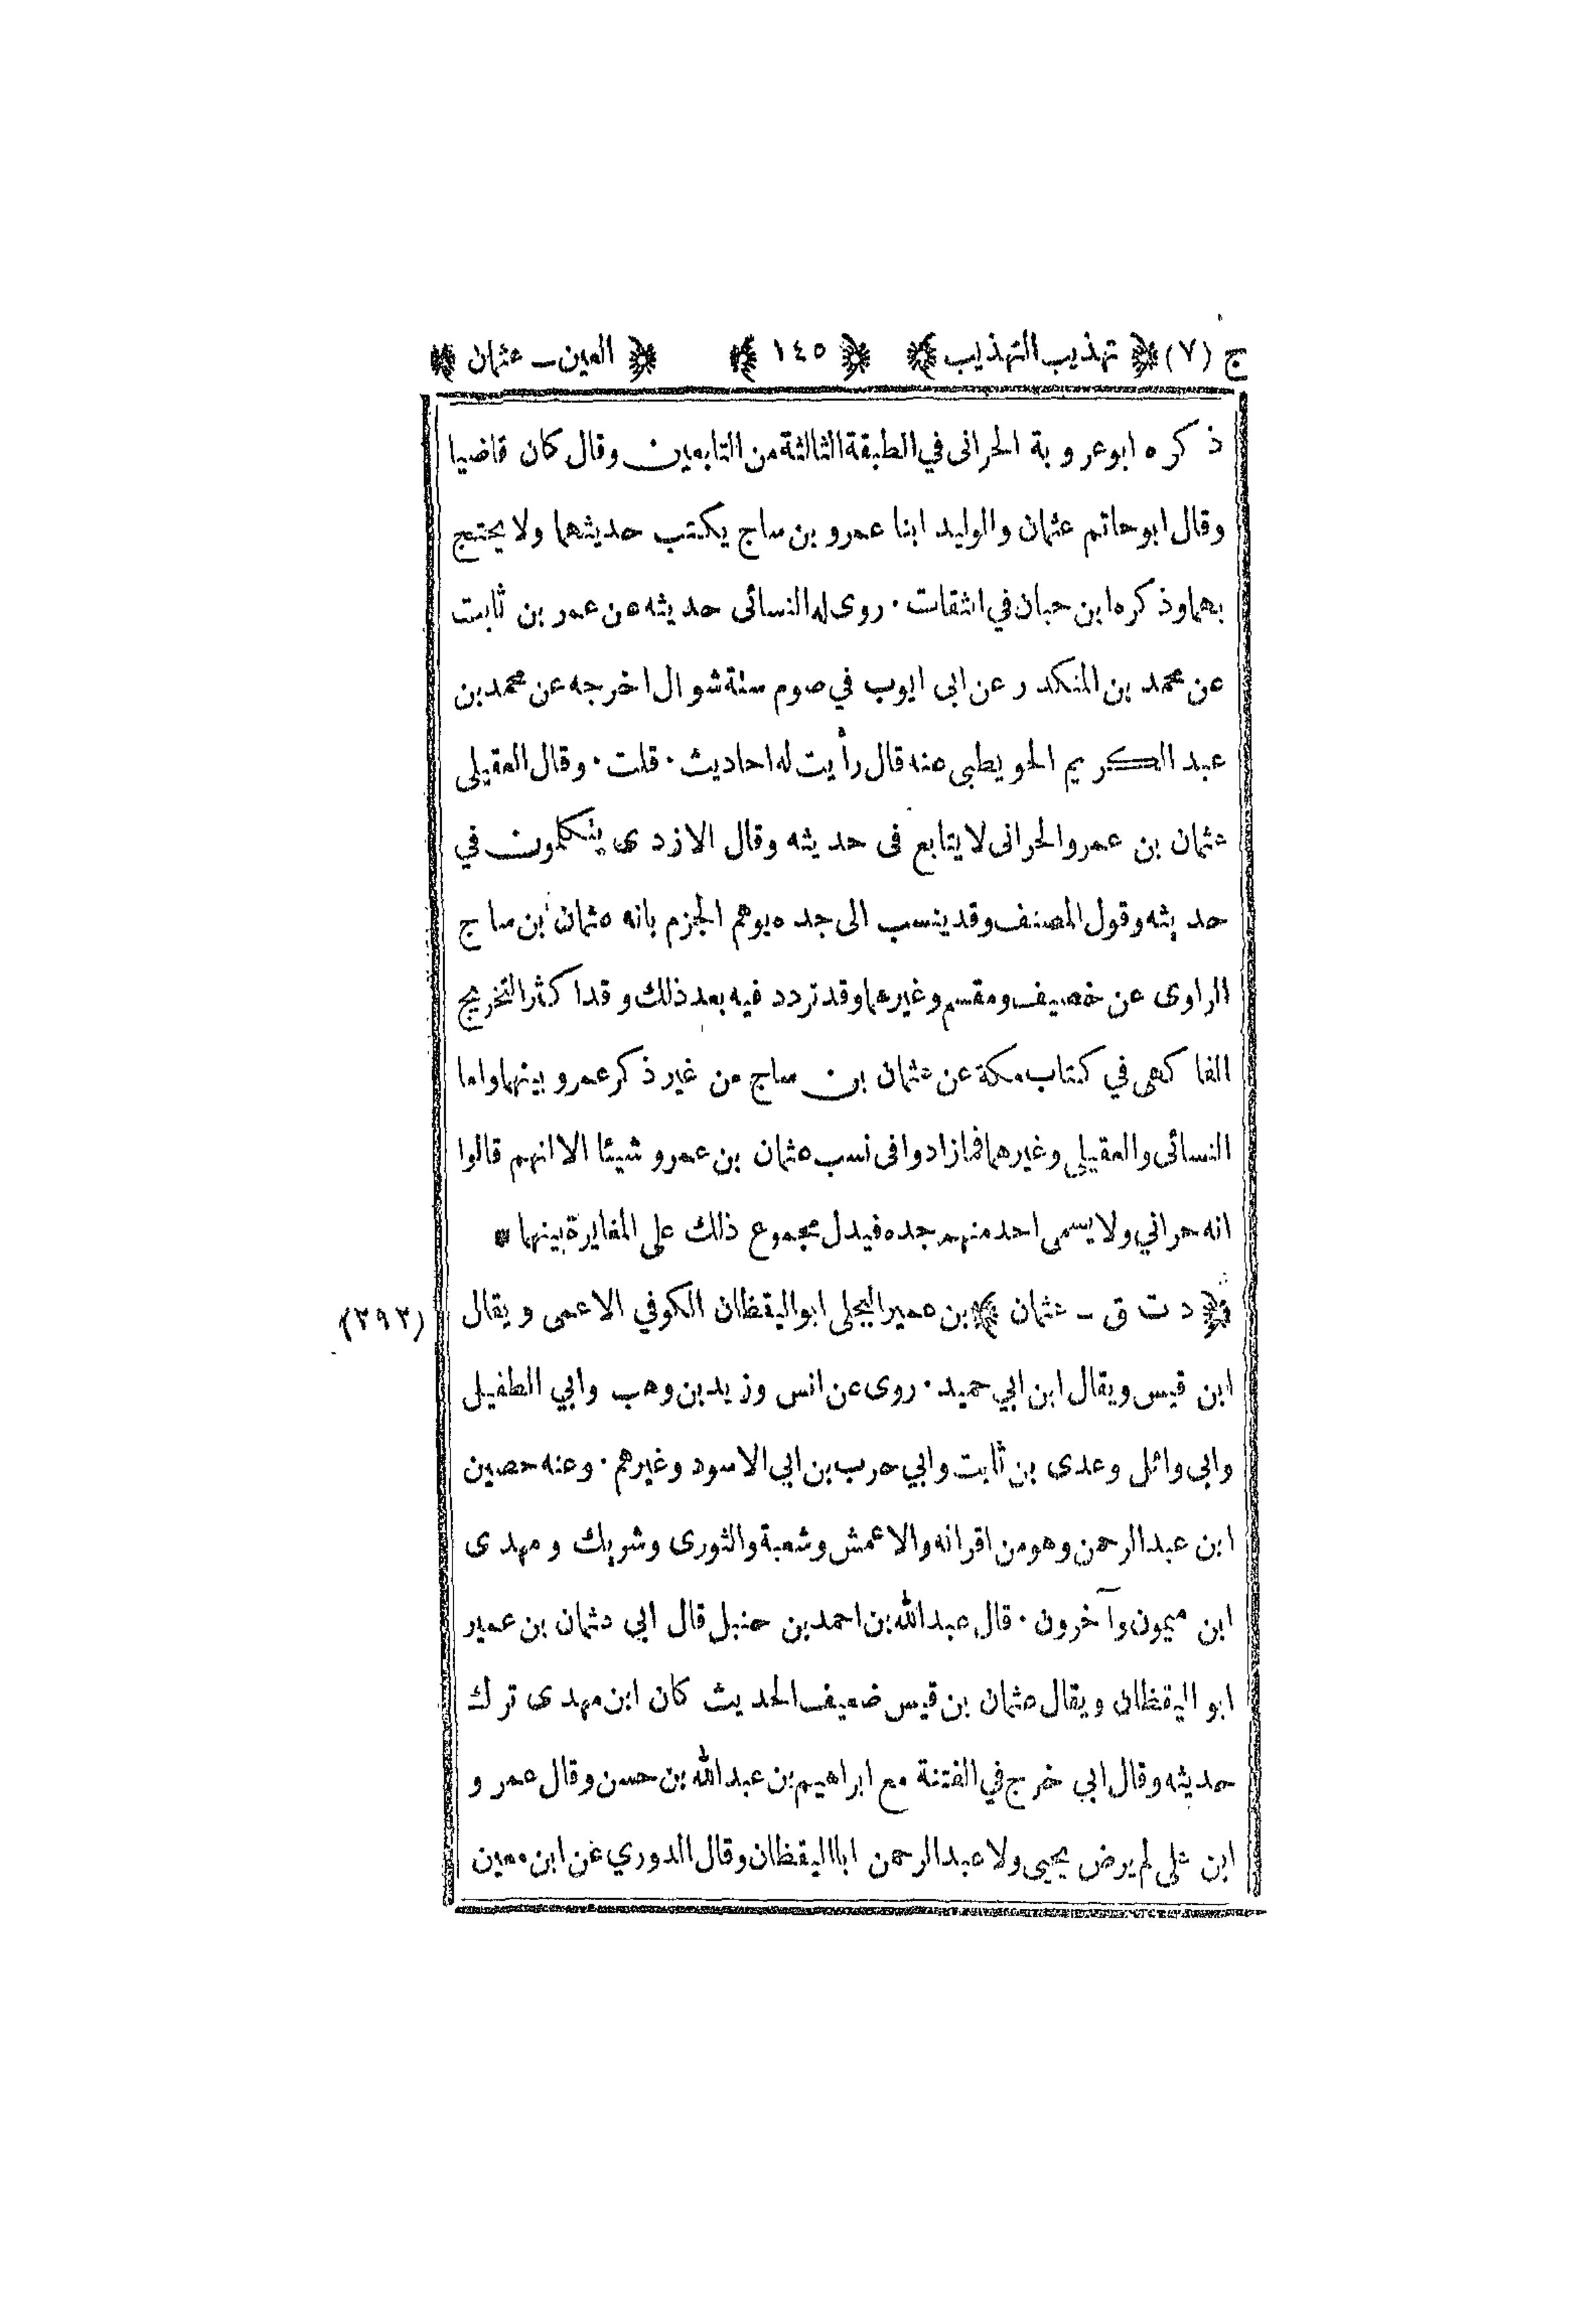 ج (٧) ﴿ تهذيب التهذيب ﴾ ﴿ ١٤٥ ﴾ ﴿ العين ـ عثمان ﴾
ذكره ابو عروبة الحرانى في الطبقة الثالثة من التابعين وقال كان قاضيا
وقال ابوحاتم عثمان والوليد ابنا عمرو بن ساج يكتب حديثهما ولا يحتج
بهما وذكره ابن حبان في الثقات ٠ روى له النسائى حديثه عن عمر بن ثابت
عن محمد بن المنكدر عن ابى ايوب في صوم ستة شوال اخرجه عن محمد بن
عبد الكريم الحويطبى عنه قال رأيت له احاديث ٠ قلت ٠ وقال العقيلى
عثمان بن عمرو الحرانى لا يتابع فى حديثه وقال الازدى يتكلمون في
حديثه وقول المصنف وقد ينسب الى جده يوهم الجزم بانه عثمان بن ساج
الراوى عن خصيف ومقسم وغيرهما وقد تردد فيه بعد ذلك وقد اكثر التخريج
الفاكهى في كتاب مكة عن عثمان بن ساج من غير ذكر عمرو بينهما واما
النسائى والعقيلى وغيرهما فمازادوا فى نسب عثمان بن عمرو شيئا الا انهم قالوا
انه حراني ولا يسمى احد منهم جده فيدل مجموع ذلك على المغايرة بينهما *
﴿ د ت ق ـ عثمان ﴾ بن عمير البجلى ابو اليقظان الكوفي الاعمى ويقال (٢٩٢)
ابن قيس ويقال ابن ابي حميد ٠ روى عن انس وزيد بن وهب وابي الطفيل
وابى وائل وعدى بن ثابت وابي حرب بن ابي الاسود وغيرهم ٠ وعنه حصين
ابن عبد الرحمن وهو من اقرانه والاعمش وشعبة والثورى وشريك ومهدى
ابن ميمون وآخرون ٠ قال عبد الله بن احمد بن حنبل قال ابي عثمان بن عمير
ابو اليقظان ويقال عثمان بن قيس ضعيف الحديث كان ابن مهدى ترك
حديثه وقال ابي خرج في الفتنة مع ابراهيم بن عبد الله بن حسن وقال عمرو
ابن على لم يرض يحيى ولا عبد الرحمن ابا اليقظان وقال الدوري عن ابن معين